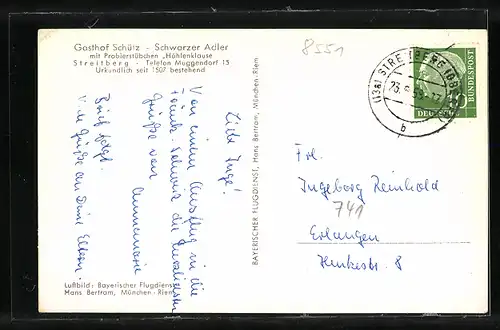 Gasthof Schütz - Schwarzer Adler
mit Probierstübchen „Höhlenklause
Streitberg - Telefon Muggendorf 13
Urkundlich seit 1507 bestehend
8551
(13a) STREITBERG (OBERFR)
b
10
DEUTSCHE
BUNDESPOST
Liebe Inge!
Von einem Ausflug in die
Fränk. Schweiz die herzlichsten
Grüße von
Annemarie
Brief folgt.
Viele Grüße an Deine Eltern.
BAYERISCHER FLUGDIENST, Hans Bertram, München-Riem
Frl.
Ingeborg Reinhold
741
Erlangen
Henkestr. 8
Luftbild: Bayerischer Flugdienst
Hans Bertram, München-Riem